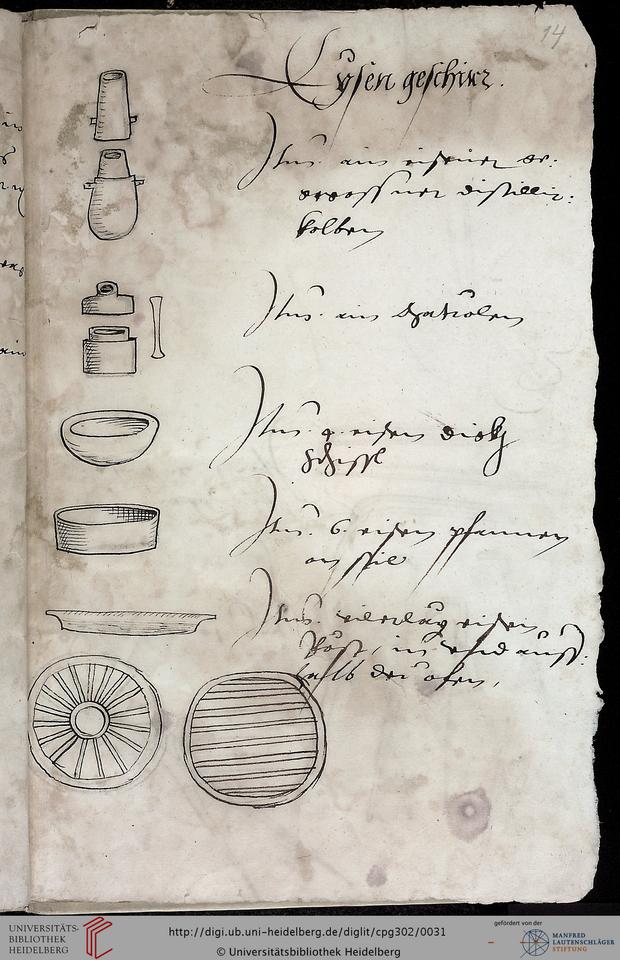 14
Eysen geschirr.
Itm. ain eisener
distillir:
kolben
Itm. ain
Itm. 4 eisen
schissl
Itm. 6. eisen pfannen
on stil
Itm. eisen
Röst, in und auss:
halb der ofen,
UNIVERSITÄTS-
BIBLIOTHEK
HEIDELBERG
http://digi.ub.uni-heidelberg.de/diglit/cpg302/0031
© Universitätsbibliothek Heidelberg
gefördert von der
MANFRED
LAUTENSCHLÄGER
STIFTUNG